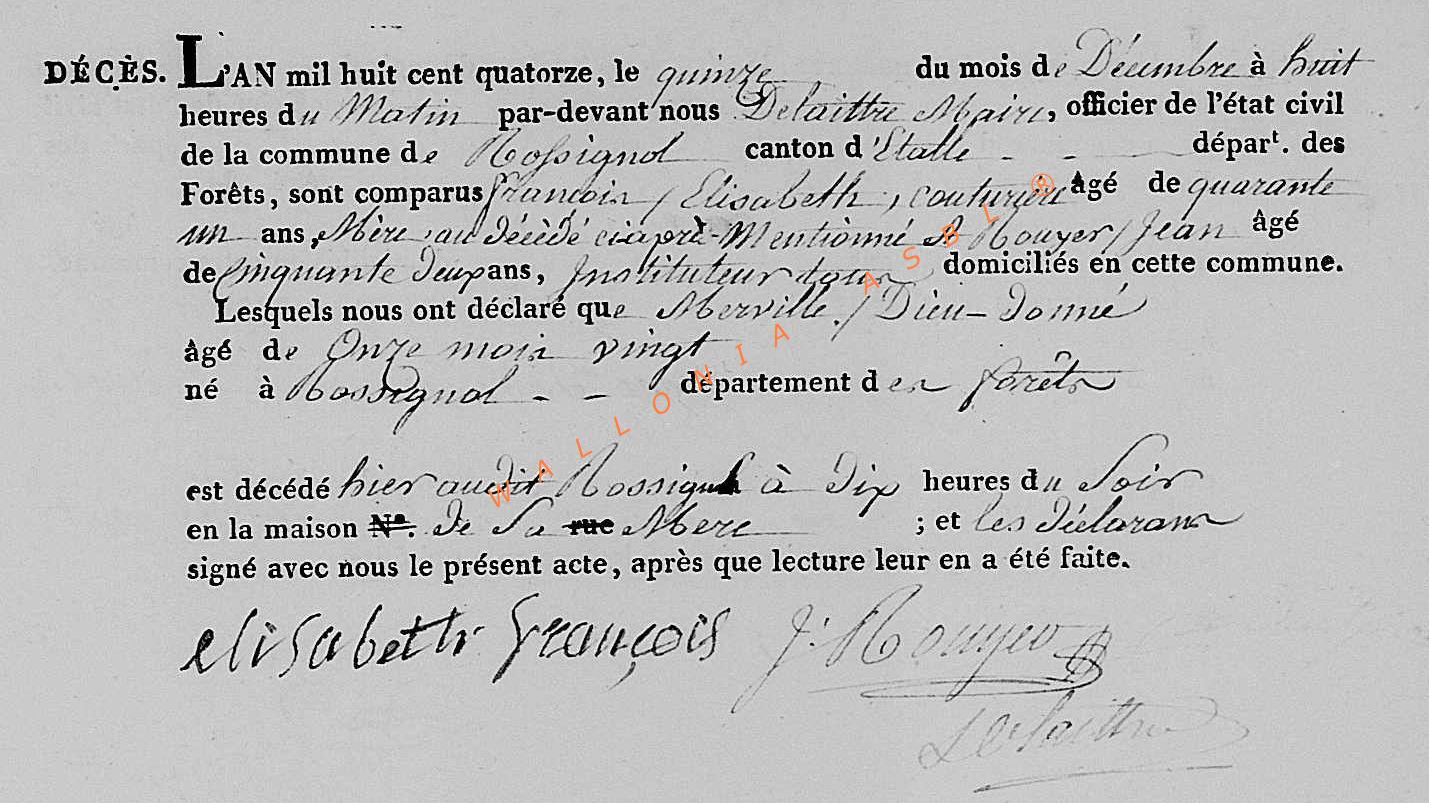 DÉCÈS. L'AN mil huit cent quatorze, le quinze du mois de Décembre à huit
heures du Matin par-devant nous Delaittre Maire, officier de l'état civil
de la commune de Rossignol canton d'Etalle - - dépar^t. des
Forêts, sont comparus François / Elisabeth, couturiere âgé de quarante
un ans, Mère au décédé ciaprè-Mentionné & Rouyer / Jean âgé
de Cinquante Deux ans, Instituteur tous domiciliés en cette commune.
Lesquels nous ont déclaré que Merville / Dieu-donné
âgé de Onze mois vingt
né à Rossignol - - département des forêts
est décédé hier audit Rossignol à Dix heures du Soir
en la maison N°. de Sa rue Mere ; et les déclarans
signé avec nous le présent acte, après que lecture leur en a été faite.
elisabeth françois J. Rouyer
Delaittre
WALLONIA ASBL ®